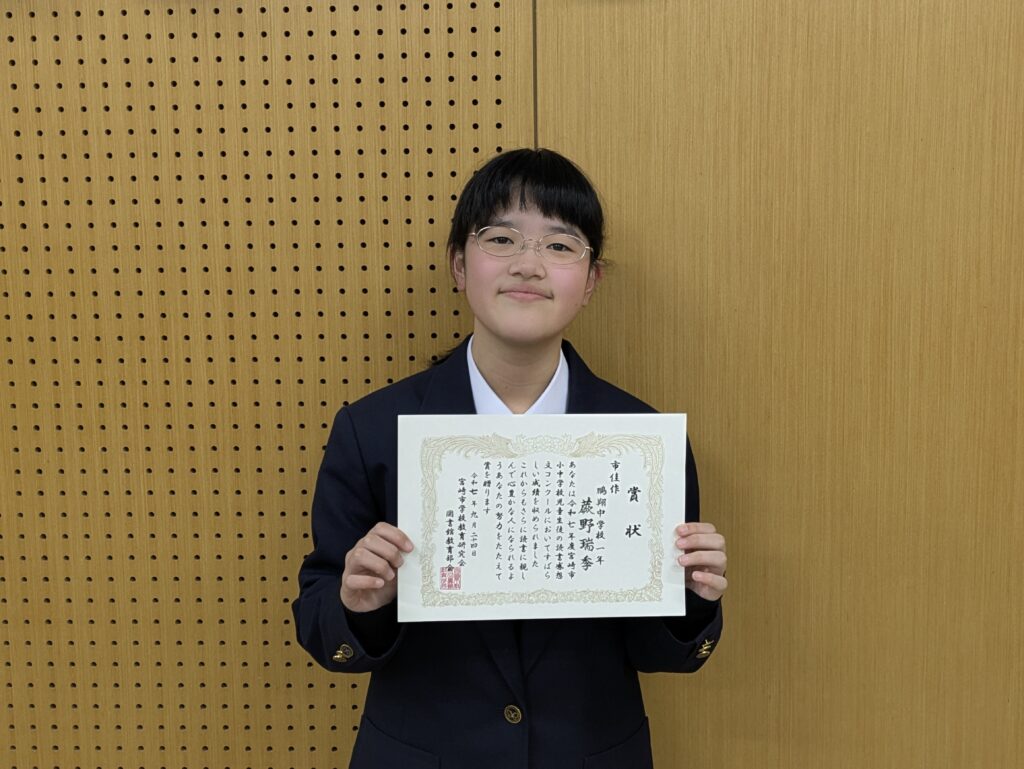 賞状
市佳作
鵬翔中学校一年
蕨野瑞季
あなたは令和七年度宮崎市
小中学校児童生徒の読書感想
文コンクールにおいてすばら
しい成績を収められました
これからもさらに読書に親し
んで心豊かな人になられるよ
うあなたの努力をたたえて
賞を贈ります
令和七年九月二十四日
宮崎市学校教育研究会
図書館教育部会